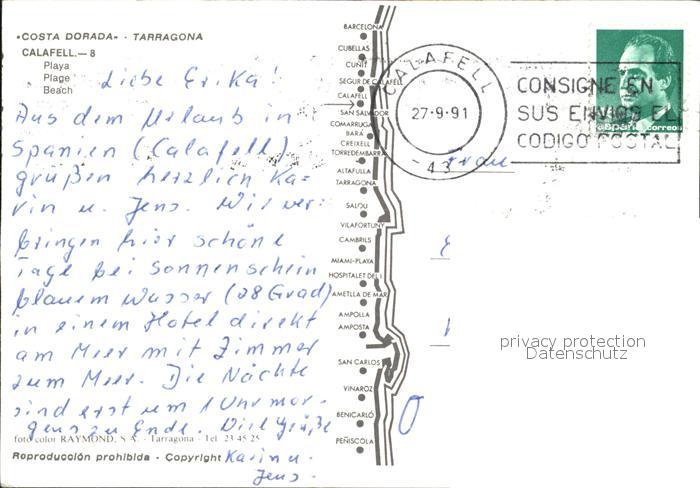 «COSTA DORADA» - TARRAGONA
CALAFELL.—8
Playa
Plage
Beach
Liebe Erika!
Aus dem Urlaub in
Spanien (Calafell)
grüßen herzlich Ka-
rin u. Jens. Wir ver-
bringen hier schöne
Tage bei Sonnenschein
blauem Wasser (28 Grad)
in einem Hotel direkt
am Meer mit Zimmer
zum Meer. Die Nächte
sind erst um 1 Uhr mor-
gens zu Ende. Viel Grüße
Karin u.
Jens.
foto color RAYMOND, S. A. - Tarragona - Tel. 23 45 25
Reproducción prohibida - Copyright
BARCELONA
CUBELLAS
CUNIT
SEGUR DE CALAFELL
CALAFELL
SAN SALVADOR
COMARRUGA
BARÁ
CREIXELL
TORREDEMBARRA
ALTAFULLA
TARRAGONA
SALOU
VILAFORTUNY
CAMBRILS
MIAMI-PLAYA
HOSPITALET DEL I.
AMETLLA DE MAR
AMPOLLA
AMPOSTA
SAN CARLOS
VINAROZ
BENICARLÓ
PEÑISCOLA
CALAFELL
27-9-91
- 43 -
CONSIGNE EN
SUS ENVIOS EL
CODIGO POSTAL
España correos
Frau
privacy protection
Datenschutz